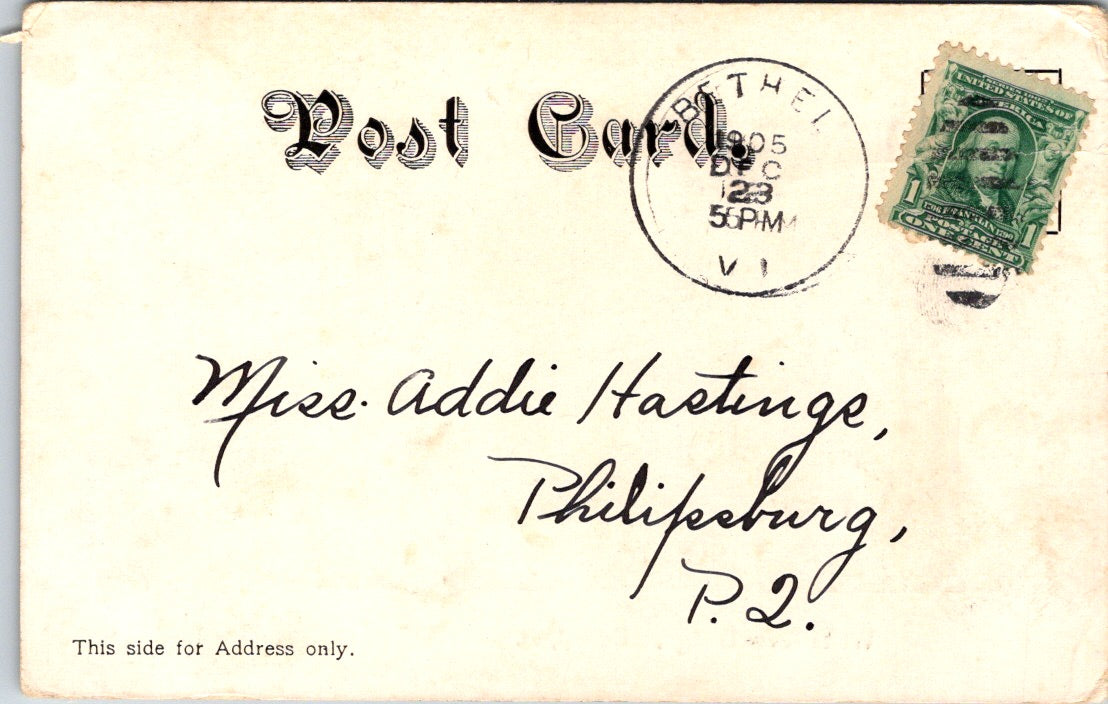 Post Card
BETHEL
1905
DEC
23
5 PM
VT
UNITED STATES OF
AMERICA
1 1
FRANKLIN
POSTAGE
ONE CENT
Miss. Addie Hastings,
Philipsburg,
P.Q.
This side for Address only.